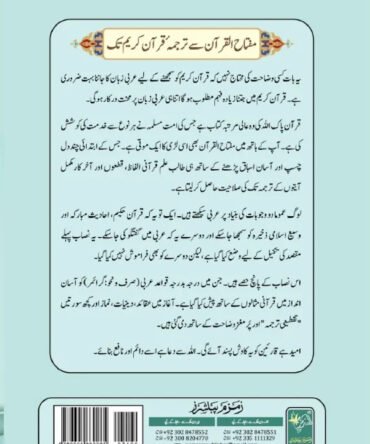 مفتاح القرآن سے ترجمۂ قرآن کریم تک
یہ بات کسی وضاحت کی محتاج نہیں کہ قرآن کریم کو سمجھنے کے لیے عربی زبان کا جاننا بہت ضروری
ہے۔ قرآن کریم میں جتنا زیادہ فہم مطلوب ہو گا اتنا ہی عربی زبان پر محنت درکار ہو گی۔
قرآن پاک اللہ کی وہ عالی مرتبہ کتاب ہے جس کی امت مسلمہ نے ہر نوع سے خدمت کی کوشش
کی ہے۔ آپ کے ہاتھ میں مفتاح القرآن بھی اسی لڑی کا ایک موتی ہے۔ جس کے ابتدائی چند دل
چسپ اور آسان اسباق پڑھنے کے ساتھ ہی طالب علم قرآنی الفاظ، قطعوں اور آخر کار مکمل
آیتوں کے ترجمہ تک کی صلاحیت حاصل کر لیتا ہے۔
لوگ عموماً دو وجوہات کی بنیاد پر عربی سیکھتے ہیں۔ ایک تو یہ کہ قرآن حکیم، احادیث مبارکہ اور
وسیع اسلامی ذخیرہ کو سمجھا جا سکے اور دوسرے یہ کہ عربی میں گفتگو کی جا سکے۔ یہ نصاب پہلے
مقصد کی تکمیل کے لیے وضع کیا گیا ہے، لیکن دوسرے کو بھی فراموش نہیں کیا گیا۔
اس نصاب کے پانچ حصے ہیں۔ جن میں درجہ بدرجہ قواعد عربی (صرف و نحو / گرائمر) کو آسان
انداز میں قرآنی مثالوں کے ساتھ پیش کیا گیا ہے۔ آغاز میں عقائد، دینیات، نماز اور کچھ سورتیں
"تقطیعی ترجمہ" اور پُر مغز وضاحت کے ساتھ دی گئی ہیں۔
امید ہے قارئین کو یہ کاوش پسند آئے گی۔ اللہ سے دعا ہے اسے دائم اور نافع بنائے۔
زمزم پبلشرز
+92 302 8478551
+92 302 8478552
+92 335 1111329
+92 300 8204770